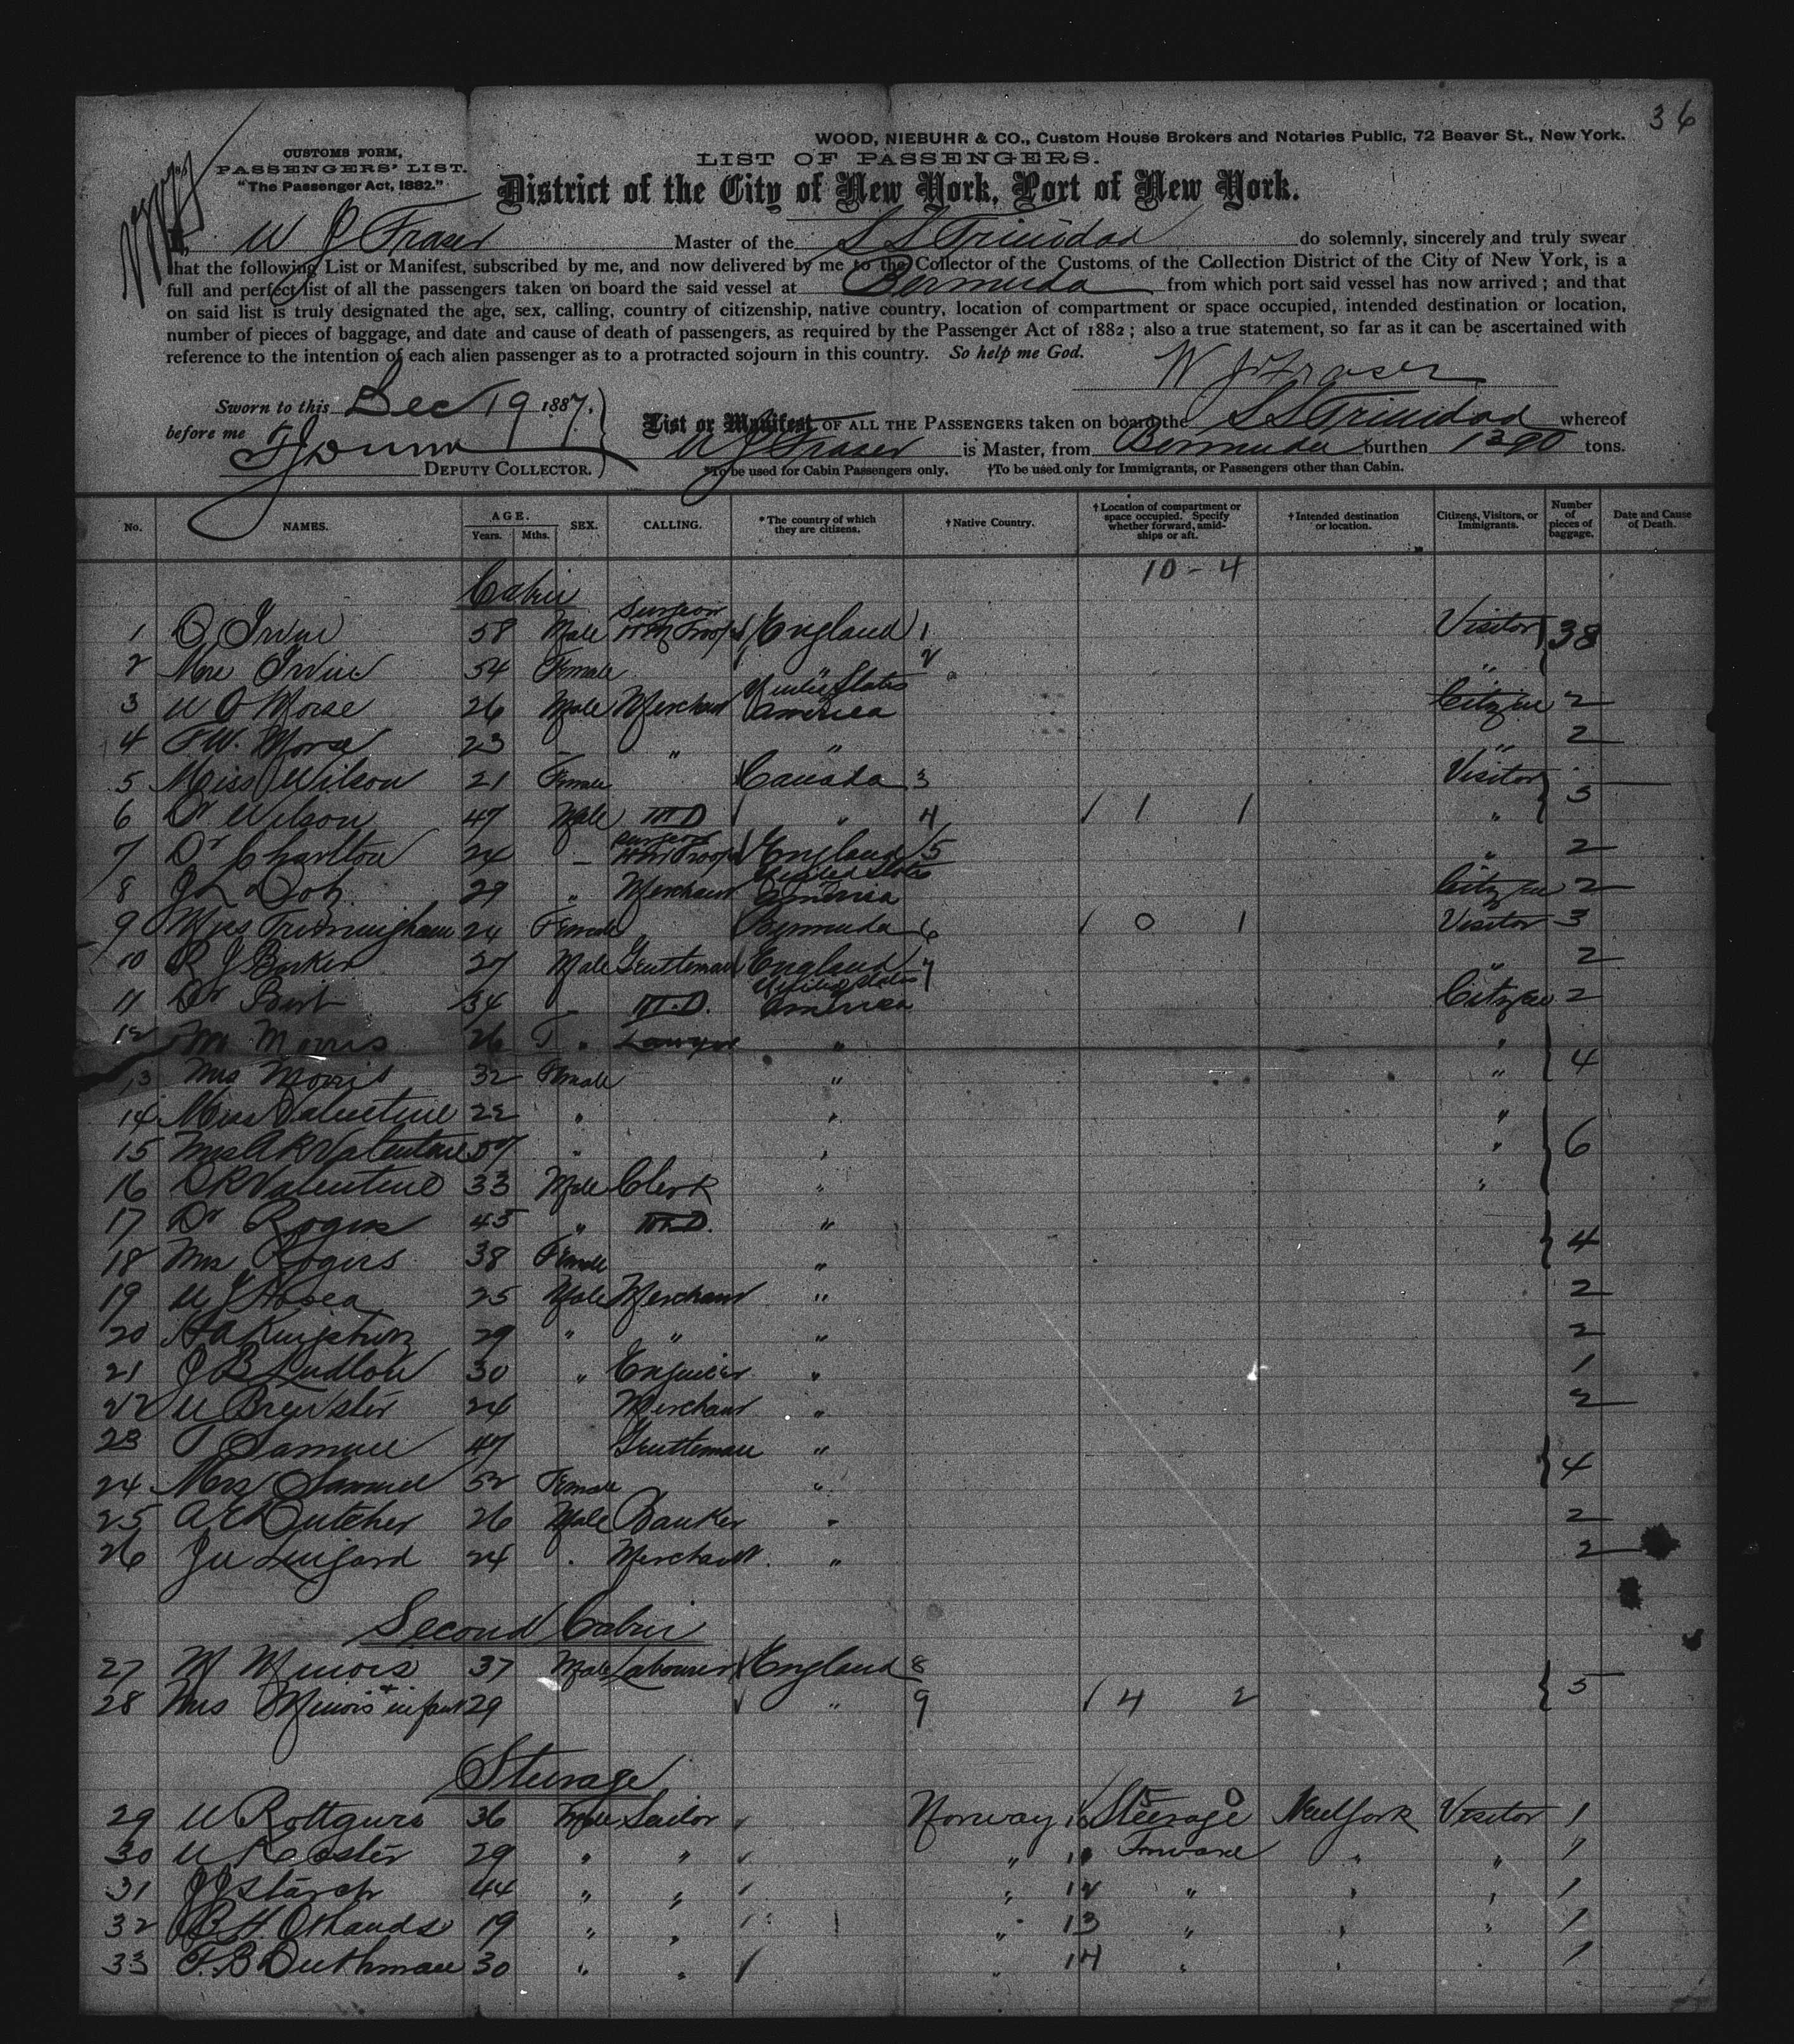 36
WOOD, NIEBUHR & CO., Custom House Brokers and Notaries Public, 72 Beaver St., New York.
CUSTOMS FORM,
PASSENGERS' LIST.
"The Passenger Act, 1882."
LIST OF PASSENGERS.
District of the City of New York, Port of New York.
W J Fraser Master of the S S Trinidad do solemnly, sincerely and truly swear
that the following List or Manifest, subscribed by me, and now delivered by me to the Collector of the Customs of the Collection District of the City of New York, is a
full and perfect list of all the passengers taken on board the said vessel at Bermuda from which port said vessel has now arrived; and that
on said list is truly designated the age, sex, calling, country of citizenship, native country, location of compartment or space occupied, intended destination or location,
number of pieces of baggage, and date and cause of death of passengers, as required by the Passenger Act of 1882; also a true statement, so far as it can be ascertained with
reference to the intention of each alien passenger as to a protracted sojourn in this country. So help me God.
W J Fraser
Sworn to this Dec 19 1887.
before me
DEPUTY COLLECTOR.
List or Manifest, OF ALL THE PASSENGERS taken on board the S S Trinidad whereof
W J Fraser is Master, from Bermuda burthen 1390 tons.
*To be used for Cabin Passengers only. †To be used only for Immigrants, or Passengers other than Cabin.
No. NAMES. AGE. Years. Mths. SEX. CALLING. *The country of which they are citizens. †Native Country. †Location of compartment or space occupied. Specify whether forward, amidships or aft. †Intended destination or location. Citizens, Visitors, or Immigrants. Number of pieces of baggage. Date and Cause of Death.
10-4
Cabin
1 O Irvine 58 Male Surgeon HM Troops England 1 Visitor 38
2 Mrs Irvine 54 Female " 2 "
3 W O Morse 26 Male Merchant United States America Citizen 2
4 F W. Morse 23 " " " 2
5 Miss Wilson 21 Female Canada 3 Visitor 5
6 Dr Wilson 47 Male M D " 4 1 1 "
7 Dr Charlton 24 Surgeon HM Troops England 5 " 2
8 J L Dob 29 " Merchant United States America Citizen 2
9 Miss Trimingham 24 Female Bermuda 6 0 1 Visitor 3
10 R J Barker 27 Male Gentleman England 7 " 2
11 Dr Burt 34 M.D. United States America Citizen 2
12 Mr Morris 26 " Lawyer " " 4
13 Mrs Morris 32 Female " "
14 Miss Valentine 22 " " "
15 Mrs A R Valentine 57 " " " 6
16 D R Valentine 33 Male Clerk " "
17 Dr Rogers 45 " M.D. "
18 Mrs Rogers 38 Female " 4
19 W J Hosea 25 Male Merchant " 2
20 H A Kingston 29 " " " 2
21 J B Ludlow 30 " Engineer " 1
22 W Brewster 24 Merchant " 2
23 T Samuel 47 Gentleman "
24 Mrs Samuel 52 Female " 4
25 A E Butcher 26 Male Banker " 2
26 24 " Merchant " 2
Second Cabin
27 M Minors 37 Male Labourer England 8
28 Mrs Minors + infant 29 " 9 4 2 5
Steerage
29 W Rottgers 36 Male Sailor Norway 10 Steerage New York Visitor 1
30 W Koster 29 " " " 11 Forward " " 1
31 J J Starch 44 " " " 12 " " " 1
32 B H Olhands 19 " " " 13 " " " 1
33 F. B Duthmann 30 " " " 14 " " 1